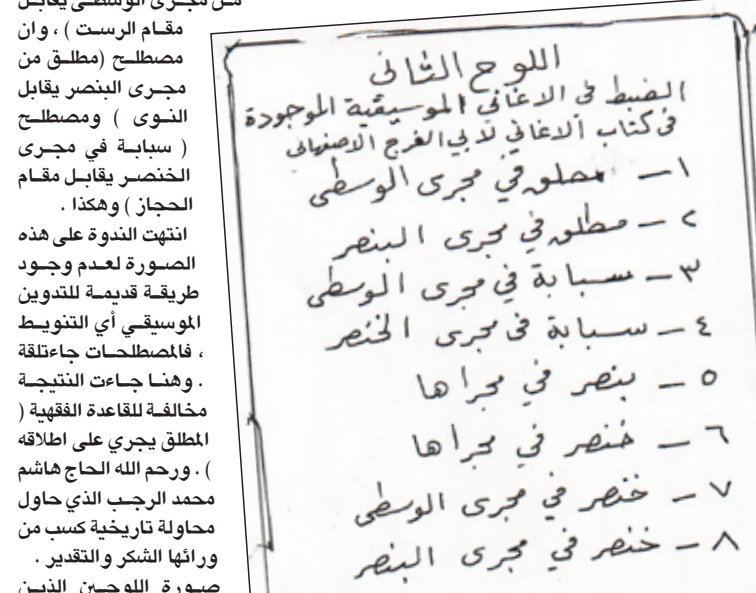 مـن مجـرى الوسطـى يقابـل
مقـام الرسـت ) ، وان
مصطلـح (مطلـق من
مجـرى البنصر يقابل
النـوى ) ومصطلـح
( سبابـة في مجـرى
الخنصـر يقابـل مقـام
الحجاز ) وهكذا .
انتهت الندوة على هذه
الصـورة لعـدم وجـود
طريقـة قديمـة للتدوين
الموسيقـي أي التنويـط
، فالمصطلحـات جاءتلقة
. وهنـا جـاءت النتيجـة
مخالفـة للقاعدة الفقهية (
المطلق يجري على اطلاقه
) . ورحم الله الحاج هاشم
محمد الرجـب الذي حاول
محاولة تاريخية كسب من
ورائها الشكر والتقدير .
صـورة اللوحـين الذيـن
اللوح الثانى
الضبط في الاغاني الموسيقية الموجودة
فى كتاب الاغاني لابي الفرج الاصفهانى
١ – مطلق في مجرى الوسطى
٢ – مطلق في مجرى البنصر
٣ – سبابة في مجرى الوسطى
٤ – سبابة في مجرى الخنصر
٥ – بنصر في مجراها
٦ – خنصر في مجراها
٧ – خنصر في مجرى الوسطى
٨ – خنصر في مجرى البنصر